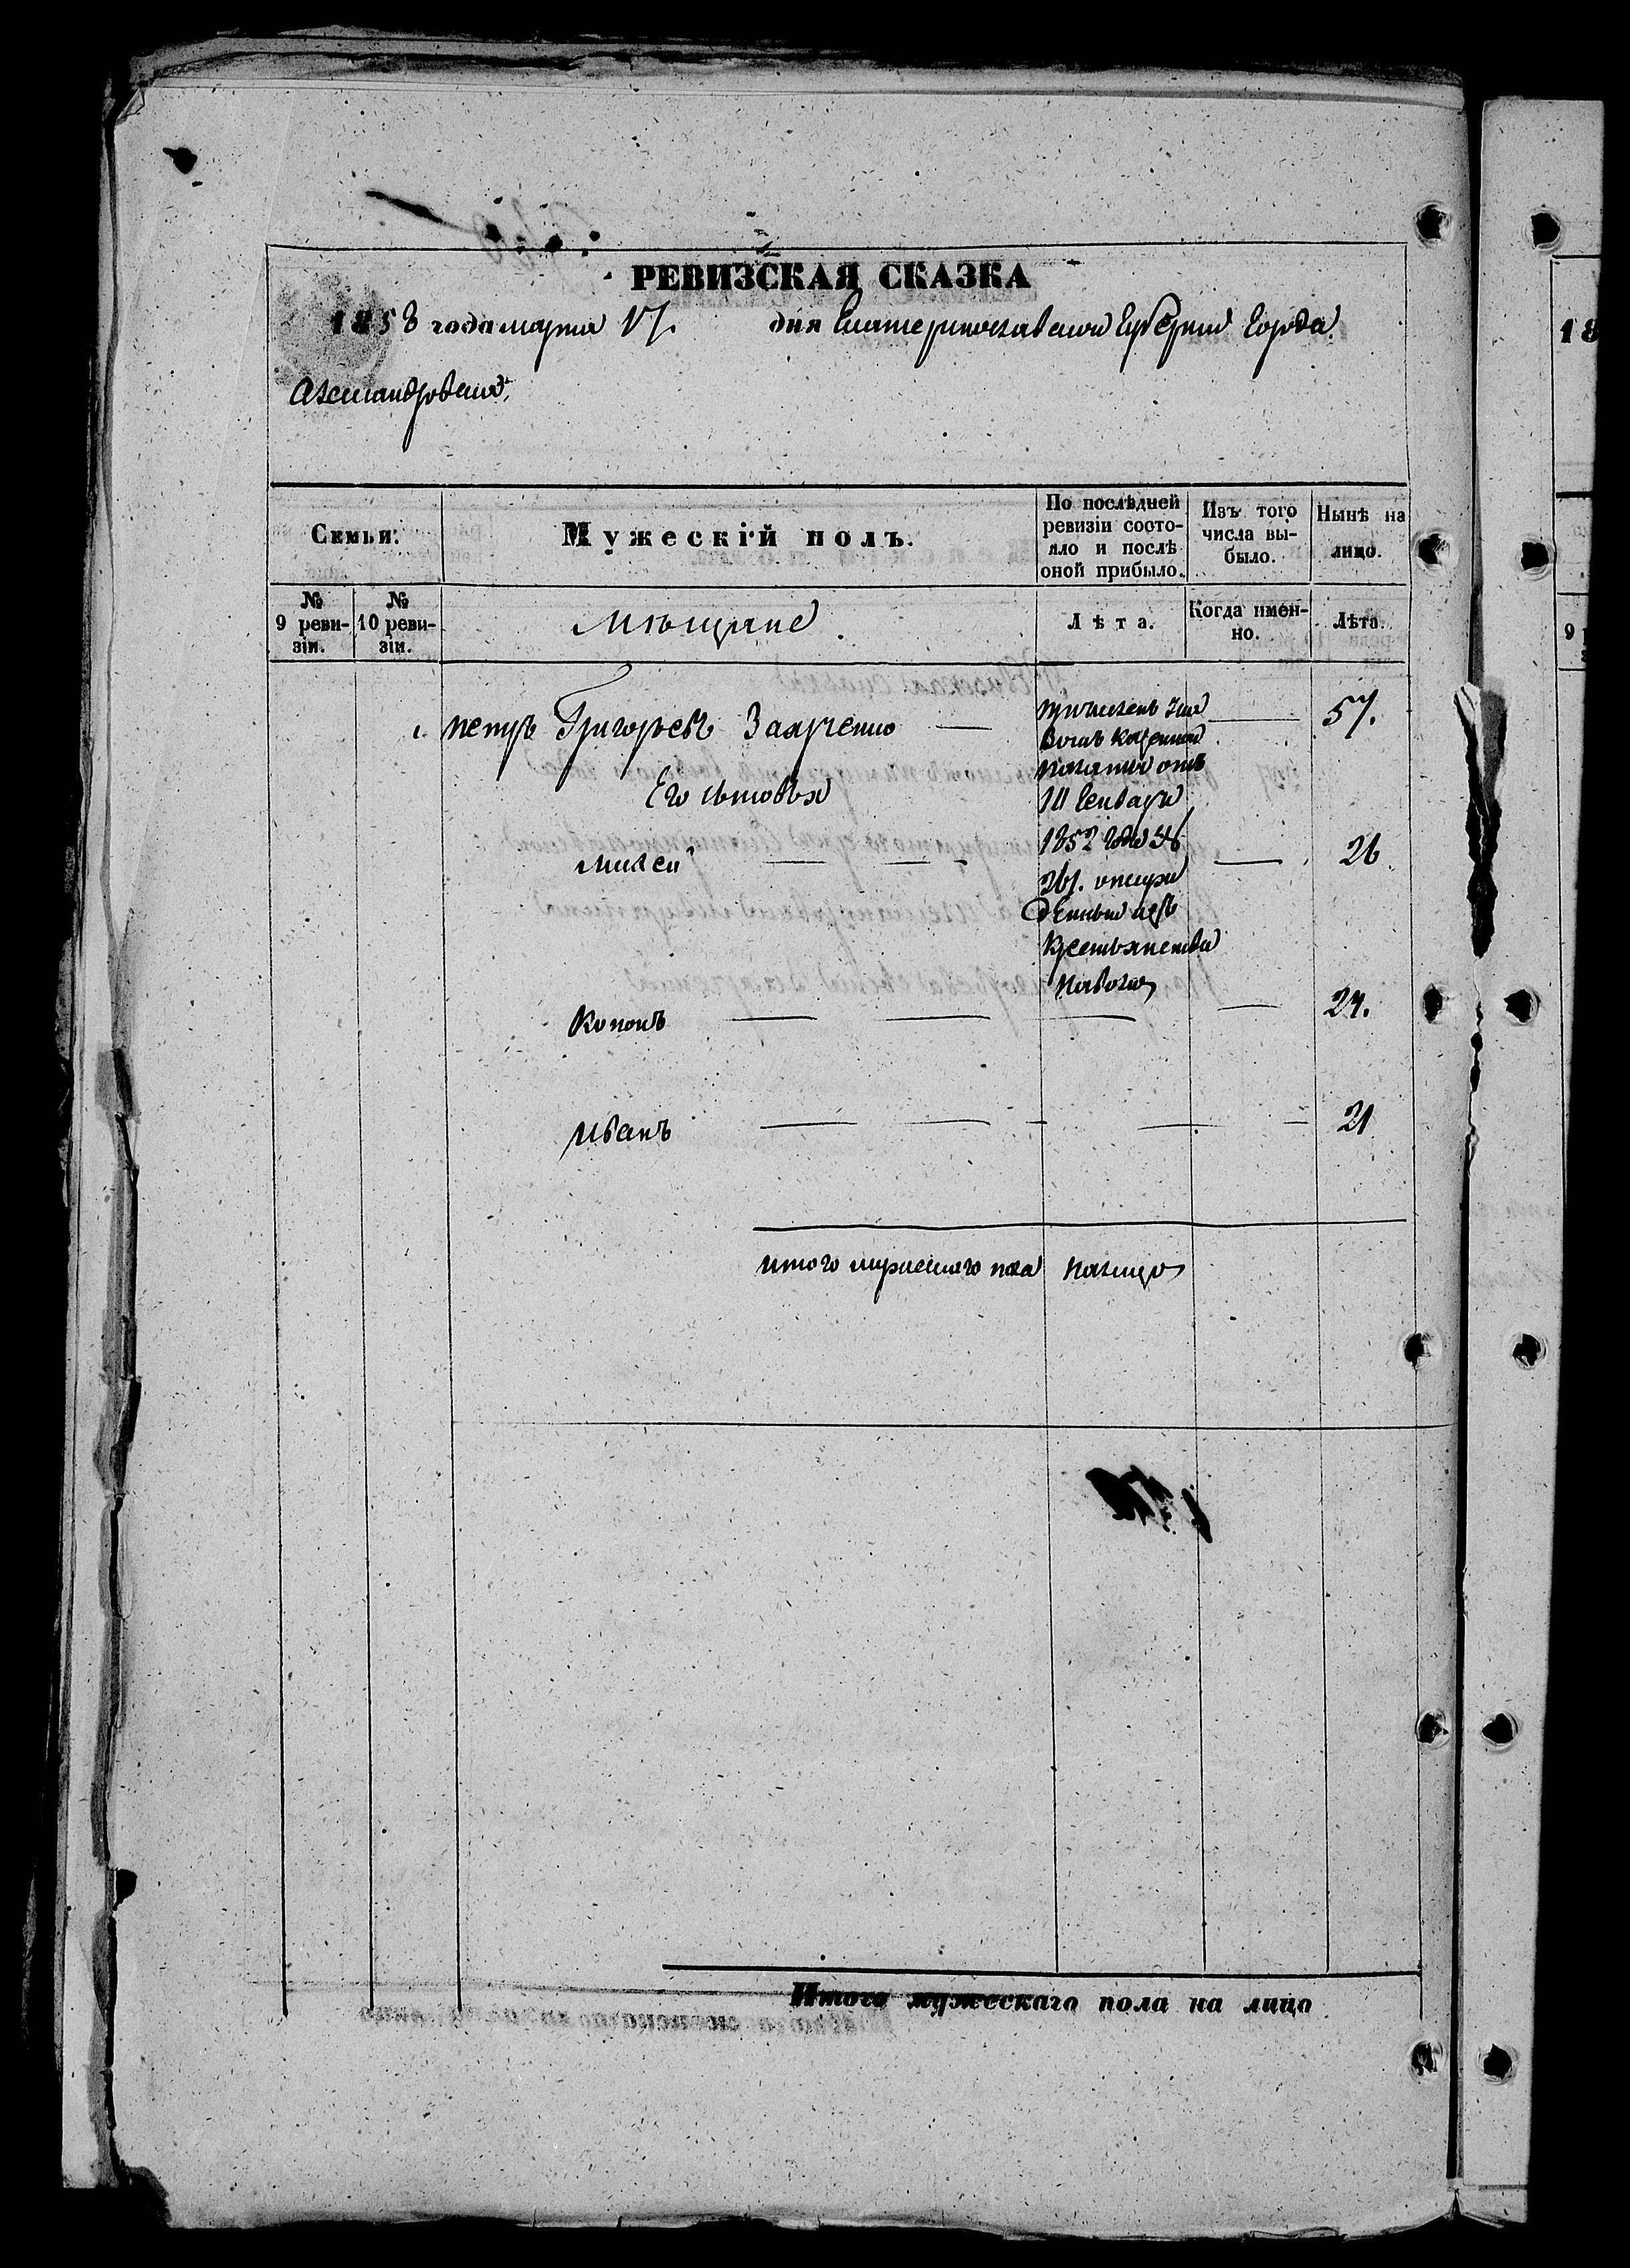 РЕВИЗСКАЯ СКАЗКА
1858 года марта 17. дня Екатеринославской Губернии Города
Александровска,
Семьи.
Мужескій полъ.
По послѣдней ревизіи состо-
яло и послѣ
оной прибыло.
Изъ того
числа вы-
было.
Нынѣ на
лицо.
№
9 реви-
зіи.
№
10 реви-
зіи.
Мѣщане
Лѣта.
Когда имен-
но.
Лѣта.
1. Петръ Григорьевъ Захрченко 57.
причисленъ
Казенной
Палаты отъ
Генваря
1852 года
Его сыновья
Моисей 26
261.
Крестьянства
Кононъ 24.
Иванъ 21
Итого мужескаго пола налицо
Итого мужескаго пола на лицо